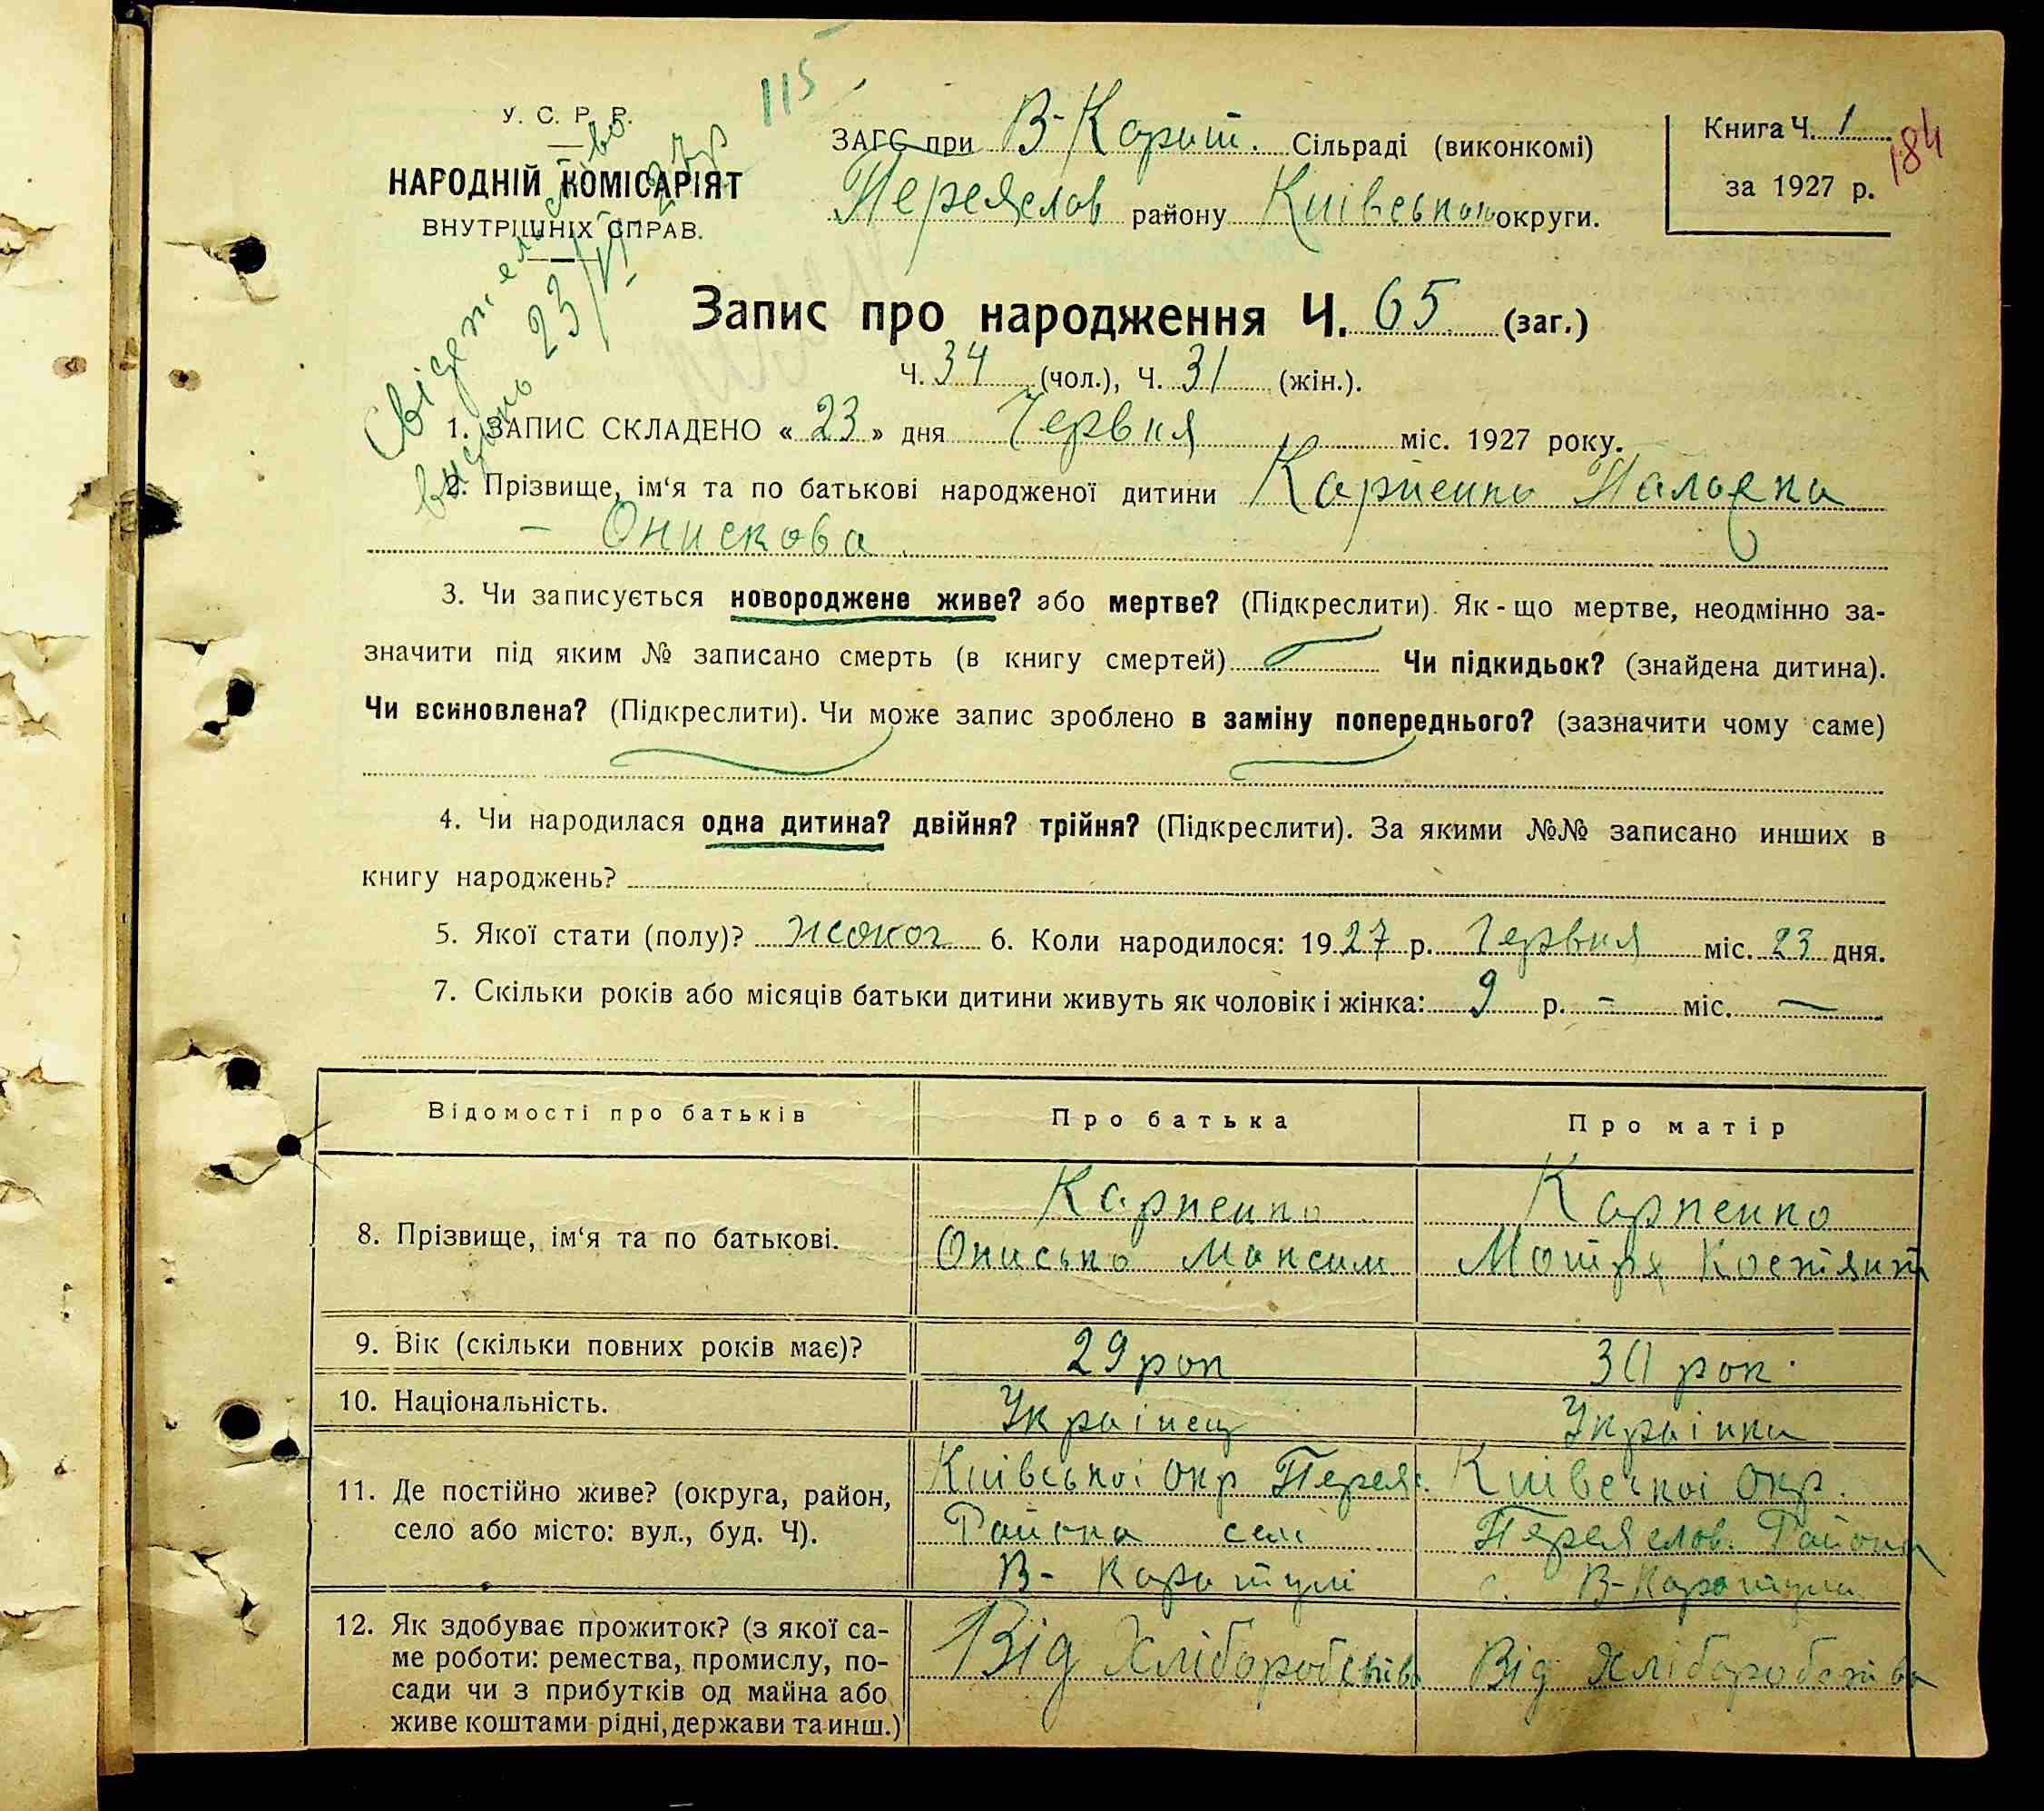 115
184
У. С. Р. Р.
НАРОДНІЙ КОМІСАРІЯТ
ВНУТРІШНІХ СПРАВ.
Свідетельство
видано 23/VI 27 р
ЗАГС при В-Карат. Сільраді (виконкомі)
Переяслов району Київської округи.
Книга Ч. 1
за 1927 р.
Запис про народження Ч. 65 (заг.)
Ч. 34 (чол.), Ч. 31 (жін.).
1. ЗАПИС СКЛАДЕНО « 23 » дня Червня міс. 1927 року.
2. Прізвище, ім‘я та по батькові народженої дитини Карпенко
– Онискова
3. Чи записується новороджене живе? або мертве? (Підкреслити). Як-що мертве, неодмінно за-
значити під яким № записано смерть (в книгу смертей) Чи підкидьок? (знайдена дитина).
Чи всиновлена? (Підкреслити). Чи може запис зроблено в заміну попереднього? (зазначити чому саме)
4. Чи народилася одна дитина? двійня? трійня? (Підкреслити). За якими №№ записано инших в
книгу народжень?
5. Якої стати (полу)? 6. Коли народилося: 1927 р. Червня міс. 23 дня.
7. Скільки років або місяців батьки дитини живуть як чоловік і жінка: 9 р. – міс. —
Відомості про батьків Про батька Про матір
8. Прізвище, ім‘я та по батькові.
Карпенко
Онисько Максим
Карпенко
Мотря Костянт
9. Вік (скільки повних років має)? 29 рок 30 рок.
10. Національність. Украінец Украінка
11. Де постійно живе? (округа, район,
село або місто: вул., буд. Ч).
Київськоі окр Переяс.
Района селі
В- Каратулі
Київськоі окр.
Переяслов. Района
с. В-Каратули
12. Як здобуває прожиток? (з якої са-
ме роботи: ремества, промислу, по-
сади чи з прибутків од майна або
живе коштами рідні, держави та инш.)
Від Хліборобства
Від Хліборобства